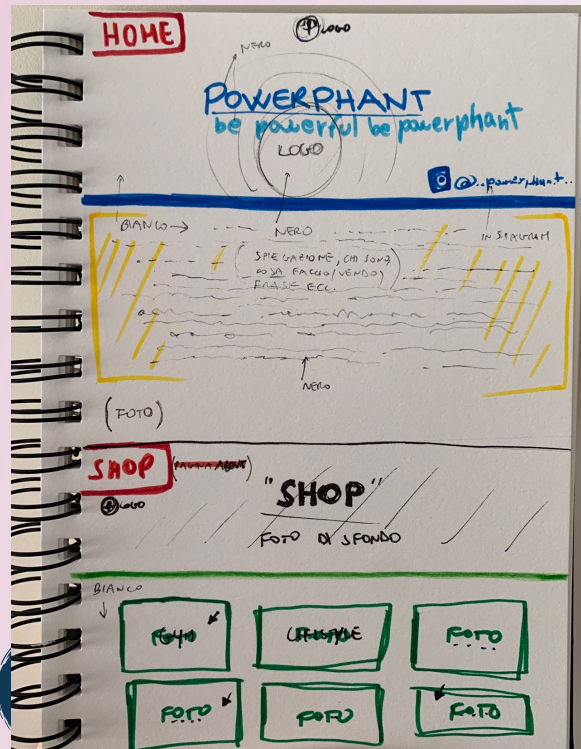 HOME
LOGO
NERO
POWERPHANT
be powerful be powerphant
LOGO
@..powerphant..
BIANCO
NERO
INSTAGRAM
(SPIEGAZIONE, CHI SONO,
COSA FACCIO/VENDO,
FRASE ECC.
NERO
(FOTO)
SHOP
(PAGINA ABOUT)
"SHOP"
LOGO
FOTO DI SFONDO
BIANCO
LIFESTYLE
FOTO
FOTO
FOTO
FOTO